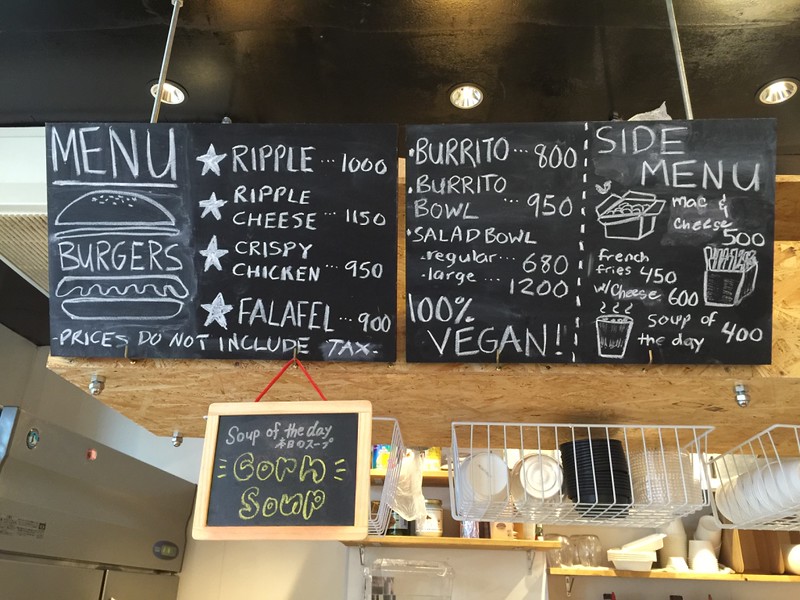 MENU
BURGERS
RIPPLE ... 1000
RIPPLE
CHEESE ... 1150
CRISPY
CHICKEN ... 950
FALAFEL ... 900
-PRICES DO NOT INCLUDE TAX-
·BURRITO ... 800
·BURRITO
BOWL ... 950
·SALAD BOWL
·regular ... 680
·large ... 1200
100%
VEGAN!
SIDE
MENU
mac &
cheese
500
french
fries 450
w/cheese 600
soup of
the day 400
Soup of the day
本日のスープ
Corn
Soup